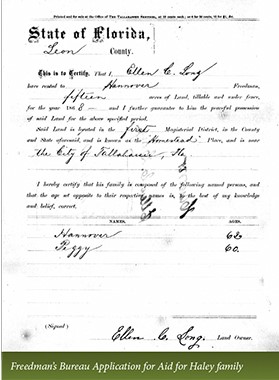 Printed and for sale at the Office of The Tallahassee Sentinel, at
State of Florida,
Leon
County.
This is to Certify, That I Ellen C. Long
have rented to Hannover Freedman,
fifteen acres of Land, tillable and under fence,
for the year 1868— and I further guarantee to him the peaceful possession
of said Land for the above specified period.
Said Land is located in the first Magisterial District, in the County
and State aforesaid, and is known as the "Homestead" Place, and is near
the City of Tallahassee, Fla
I hereby certify that his family is composed of the following named persons, and
that the age set opposite to their respective names is, to the best of my knowledge
and belief, correct.
NAMES. AGES.
Hannover 62
Peggy 60.
(Signed)
Ellen C. Long. Land Owner.
Freedman's Bureau Application for Aid for Haley family